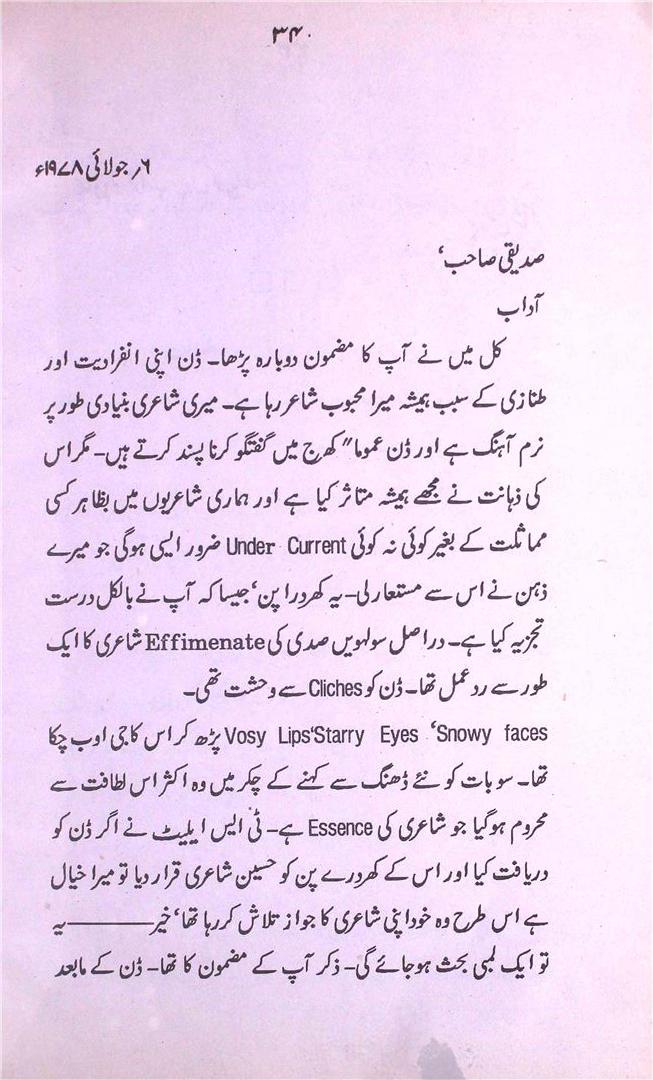 ۳۴۰
۶؍ جولائی ۱۹۷۸ء
صدیقی صاحب‘
آداب
کل میں نے آپ کا مضمون دوبارہ پڑھا۔ ڈن اپنی انفرادیت اور
طنازی کے سبب ہمیشہ میرا محبوب شاعر رہا ہے۔ میری شاعری بنیادی طور پر
نرم آہنگ ہے اور ڈن عموما" کھرج میں گفتگو کرنا پسند کرتے ہیں۔ مگر اس
کی ذہانت نے مجھے ہمیشہ متاثر کیا ہے اور ہماری شاعریوں میں بظاہر کسی
مماثلت کے بغیر کوئی نہ کوئی Under Current ضرور ایسی ہوگی جو میرے
ذہن نے اس سے مستعار لی۔ یہ کھردرا پن‘ جیسا کہ آپ نے بالکل درست
تجزیہ کیا ہے۔ دراصل سولہویں صدی کی Effimenate شاعری کا ایک
طور سے رد عمل تھا۔ ڈن کو Cliches سے وحشت تھی۔
Vosy Lips‘Starry Eyes ‘Snowy faces پڑھ کر اس کا جی اوب چکا
تھا۔ سو بات کو نئے ڈھنگ سے کہنے کے چکر میں وہ اکثر اس لطافت سے
محروم ہوگیا جو شاعری کی Essence ہے۔ ٹی ایس ایلیٹ نے اگر ڈن کو
دریافت کیا اور اس کے کھردرے پن کو حسین شاعری قرار دیا تو میرا خیال
ہے اس طرح وہ خود اپنی شاعری کا جواز تلاش کررہا تھا‘ خیر ——— یہ
تو ایک لمبی بحث ہوجائے گی۔ ذکر آپ کے مضمون کا تھا۔ ڈن کے مابعد